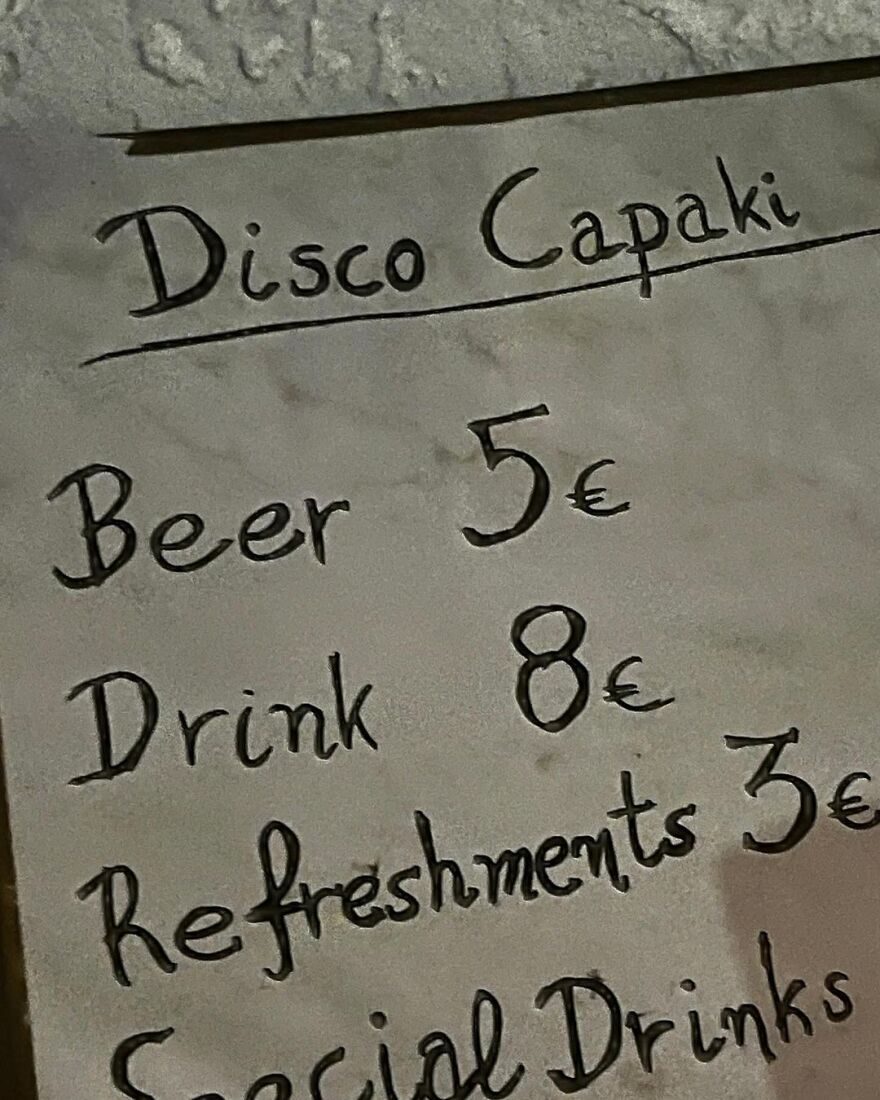 Disco Capaki
Beer 5€
Drink 8€
Refreshments 3€
Special Drinks